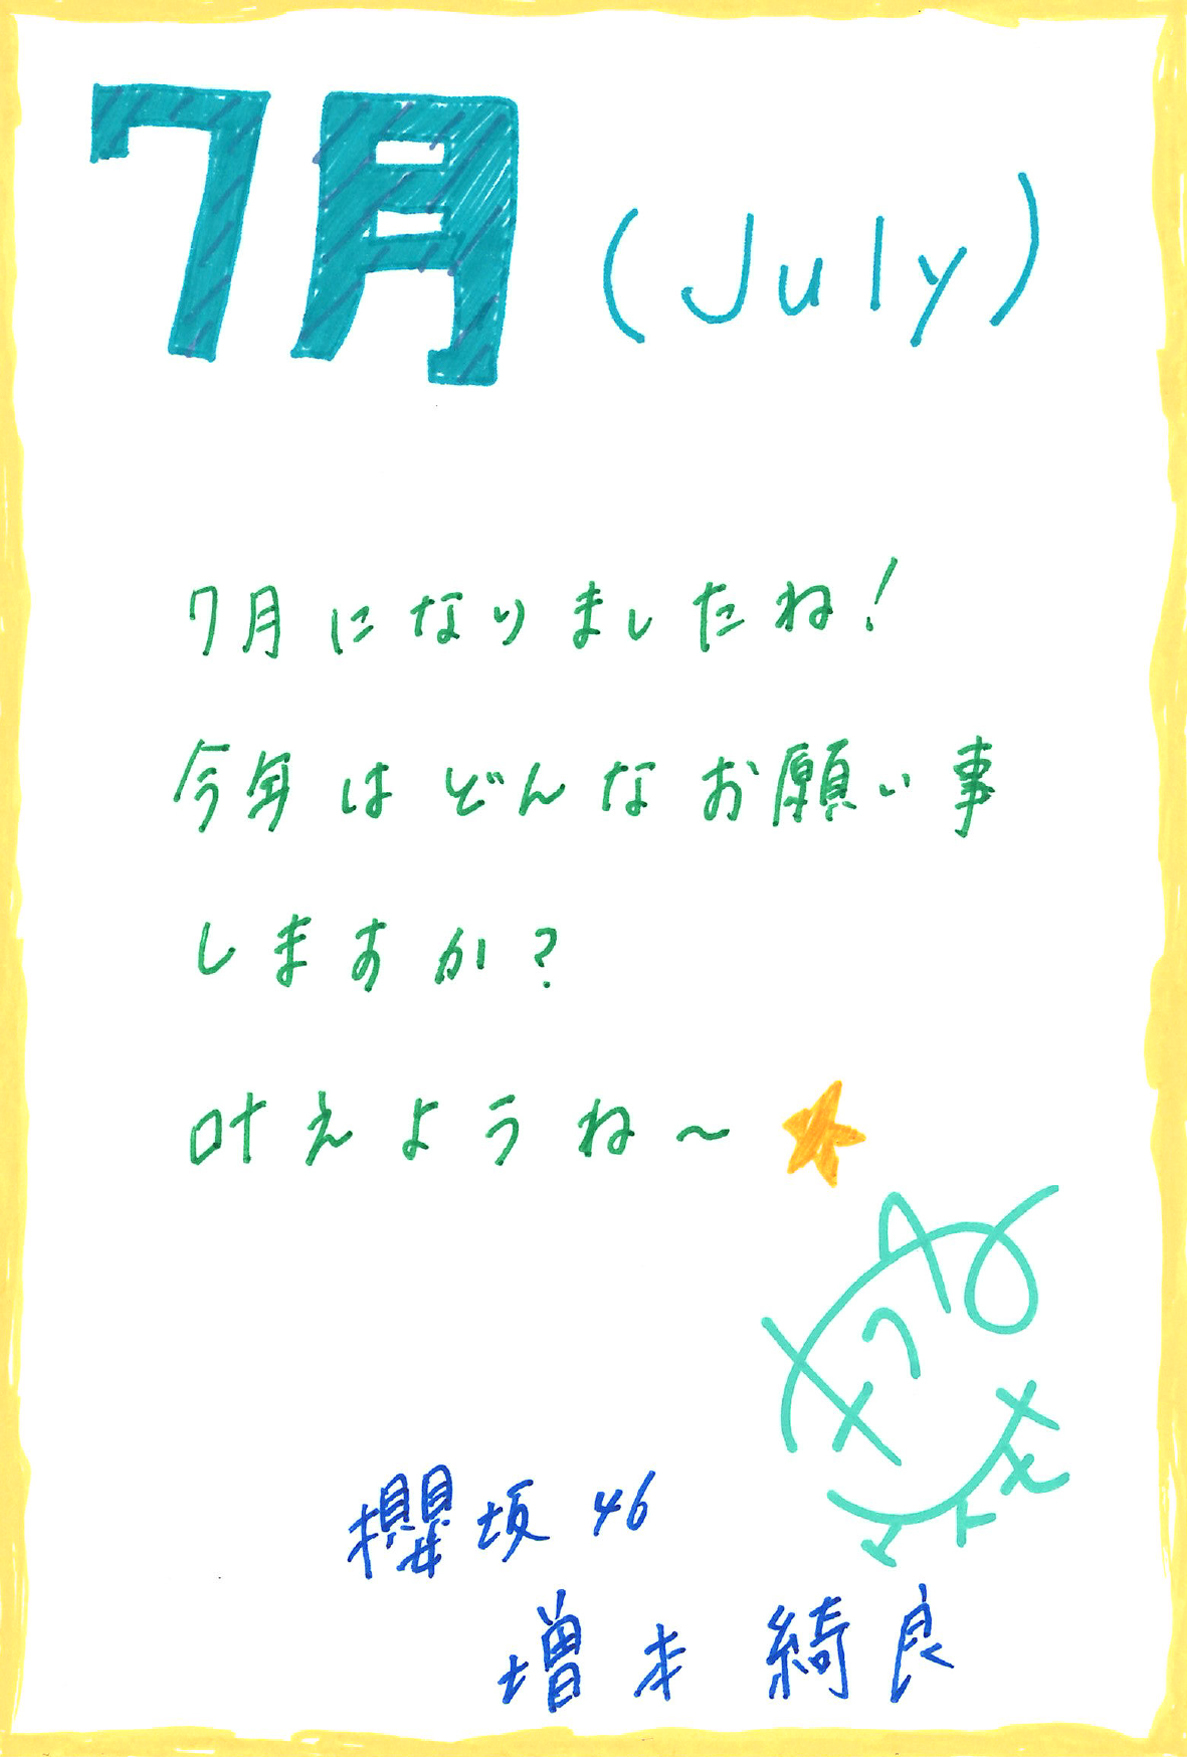 7月 (July)
7月になりましたね!
今年はどんなお願い事
しますか?
叶えようね〜
櫻坂46
増本綺良